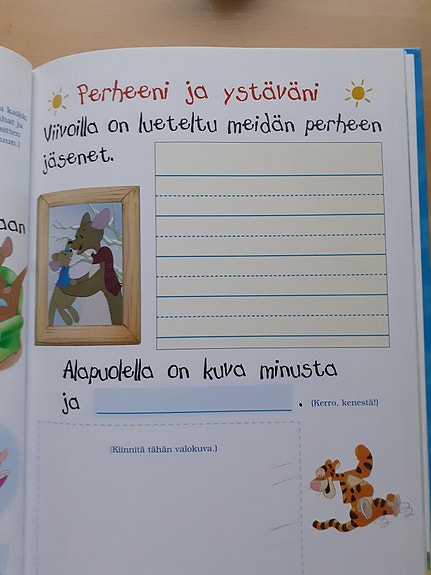 Perheeni ja ystäväni
Viivoilla on lueteltu meidän perheen
jäsenet.
Alapuolella on kuva minusta
ja
. (Kerro, kenestä!)
(Kiinnitä tähän valokuva.)